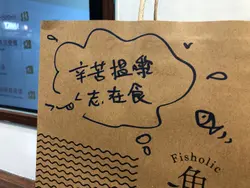 辛苦搵嚟
志在食
Fisholic
魚